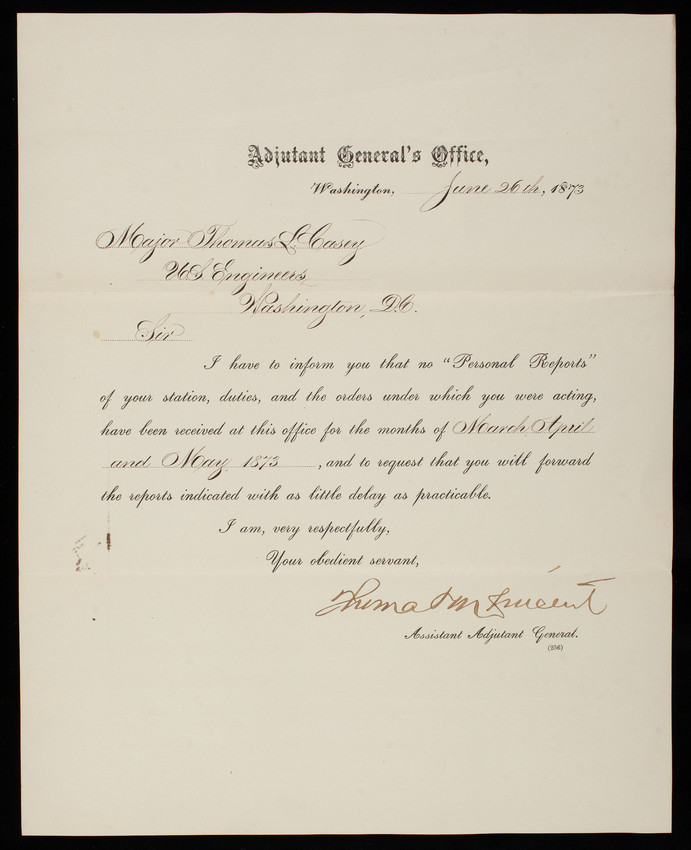 Adjutant General's Office,
Washington, June 26th, 1873
Major Thomas L. Casey
U.S. Engineers
Washington, D.C.
Sir
I have to inform you that no "Personal Reports"
of your station, duties, and the orders under which you were acting,
have been received at this office for the months of March, April
and May, 1873, and to request that you will forward
the reports indicated with as little delay as practicable.
I am, very respectfully,
Your obedient servant,
Thomas M Vincent
Assistant Adjutant General.
(256)